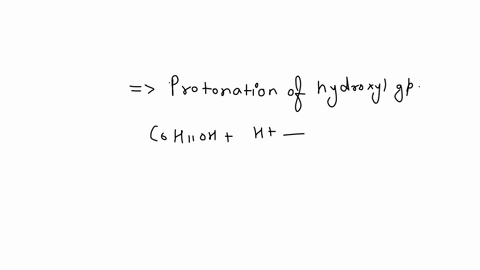 => Protonation of hydroxyl gp.
C6H11OH + H+ —